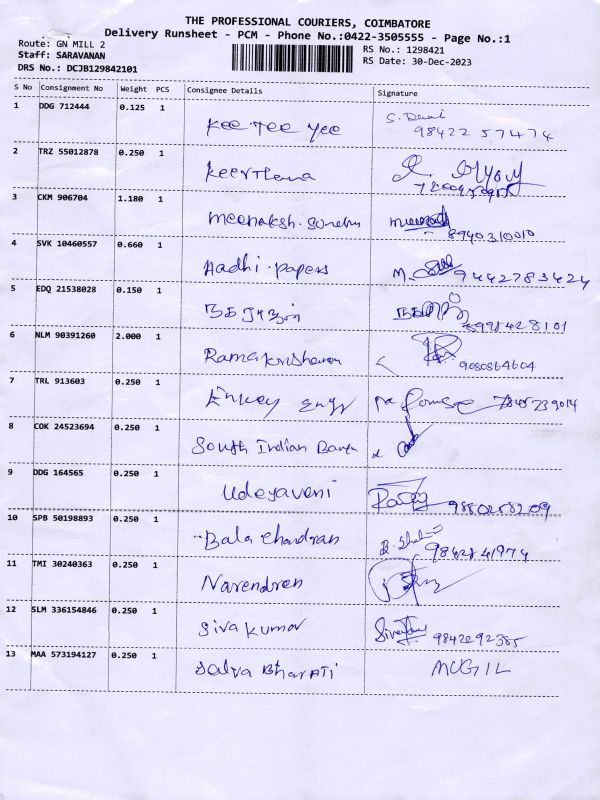 THE PROFESSIONAL COURIERS, COIMBATORE
Delivery Runsheet - PCM - Phone No.:0422-3505555 - Page No.:1
Route: GN MILL 2 RS No.: 1298421
Staff: SARAVANAN RS Date: 30-Dec-2023
DRS No.: DCJB129842101
S No Consignment No Weight PCS Consignee Details Signature
1 DDG 712444 0.125 1 Kee Tee Yee S. Devi
98422 57474
2 TRZ 55012878 0.250 1 Keerthana
3 CKM 906704 1.180 1 Meenaksh. Sundru 8940310010
4 SVK 10460557 0.660 1 Aadhi Papers M. 9442783424
5 EDQ 21538028 0.150 1
6 NLM 90391260 2.000 1 Ramakrishanan 9080864604
7 TRL 913603 0.250 1 Enkey Engr
8 COK 24523694 0.250 1 South Indian Bank
9 DDG 164565 0.250 1 Udeyaveni 9880258209
10 SPB 50198893 0.250 1 Bala Chandran
11 TMI 30240363 0.250 1 Narendren
12 SLM 336154846 0.250 1 Siva Kumar 9842292385
13 MAA 573194127 0.250 1 Salva Bharati MUGIL